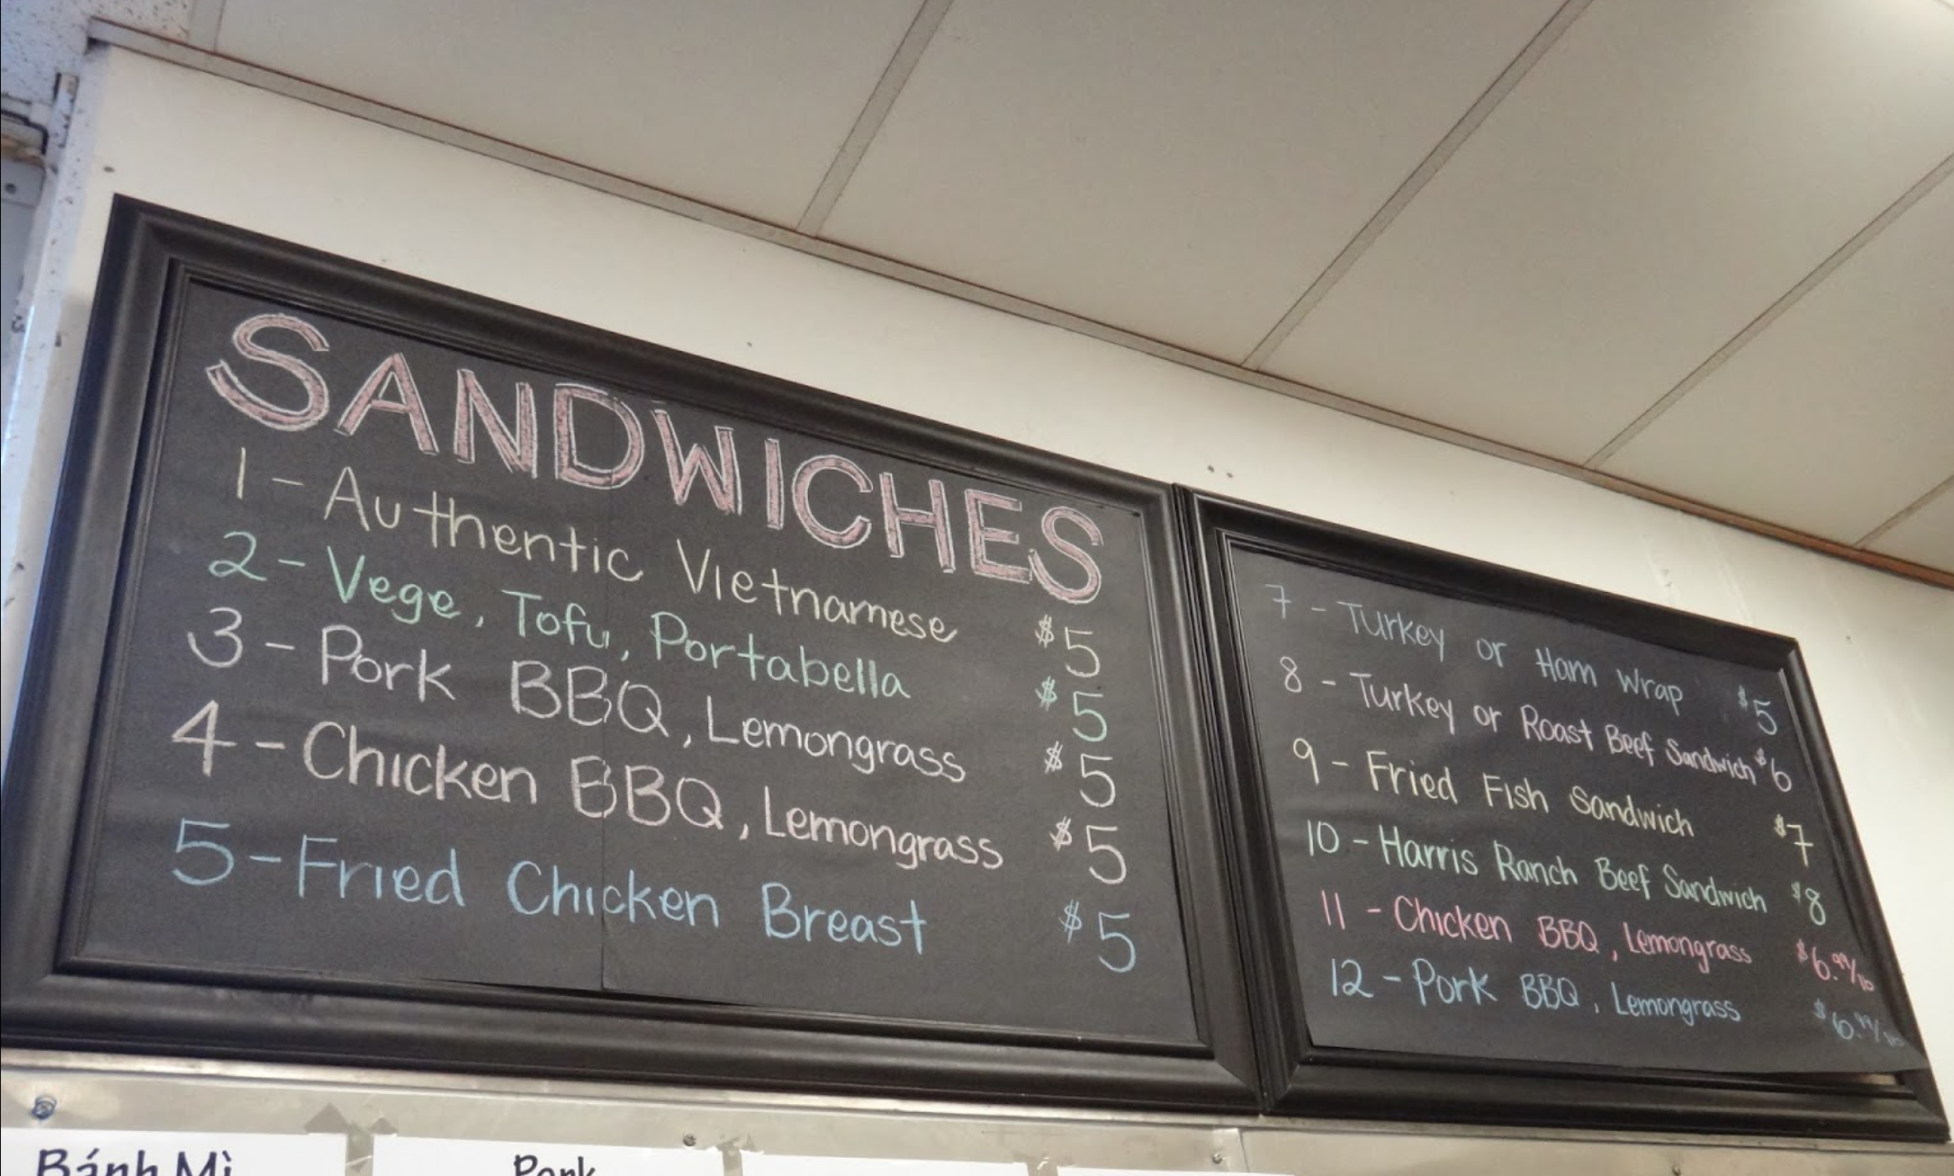 SANDWICHES
1 - Authentic Vietnamese $5
2 - Vege, Tofu, Portabella $5
3 - Pork BBQ, Lemongrass $5
4 - Chicken BBQ, Lemongrass $5
5 - Fried Chicken Breast $5
7 - Turkey or Ham Wrap $5
8 - Turkey or Roast Beef Sandwich $6
9 - Fried Fish Sandwich $7
10 - Harris Ranch Beef Sandwich $8
11 - Chicken BBQ, Lemongrass $6.99/lb
12 - Pork BBQ, Lemongrass $6.99/lb
Bánh Mì
Pork